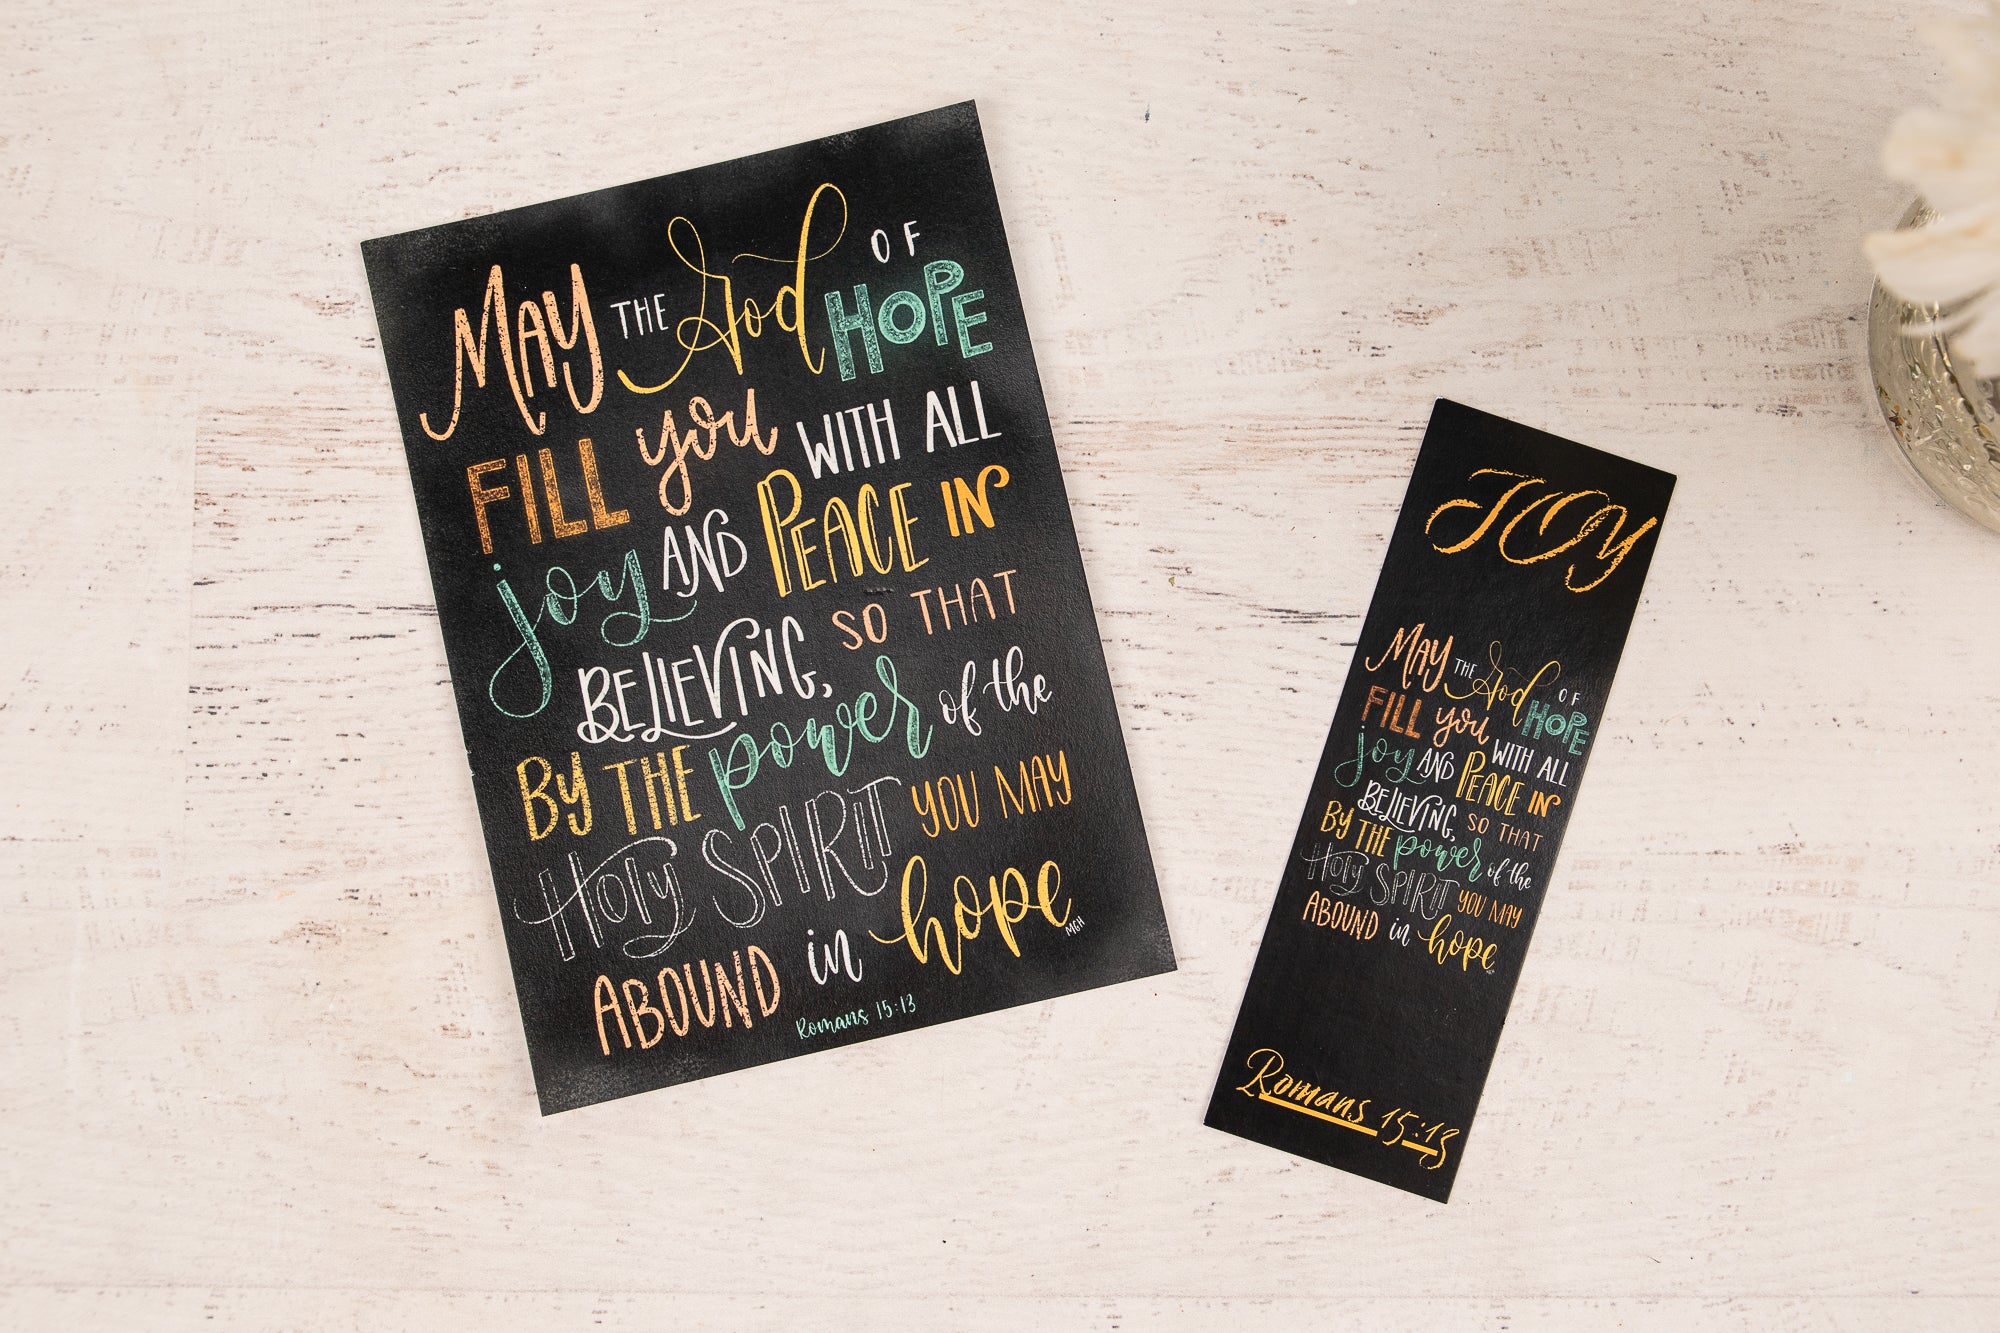 MAY THE God OF HOPE
FILL you WITH ALL
joy AND PEACE IN
BELIEVING, SO THAT
BY THE power of the
HOLY SPIRIT YOU MAY
ABOUND in hope
MGH
Romans 15:13
JOY
MAY THE God OF HOPE
FILL you WITH ALL
joy AND PEACE IN
BELIEVING, SO THAT
BY THE power of the
HOLY SPIRIT YOU MAY
ABOUND in hope
MGH
Romans 15:13